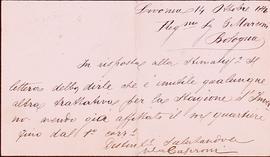 Livorno 14 Ottobre 1896
Preg.mo Sr G. Marconi
Bologna
In risposta alla Stimatissª Sª
lettera debbo dirle che è inutile qualunque
altra trattativa per la Stagione d'Inver
no avendo già affittato il mio quartiere
fino dal 1º corr.e
Salutandola
Caproni